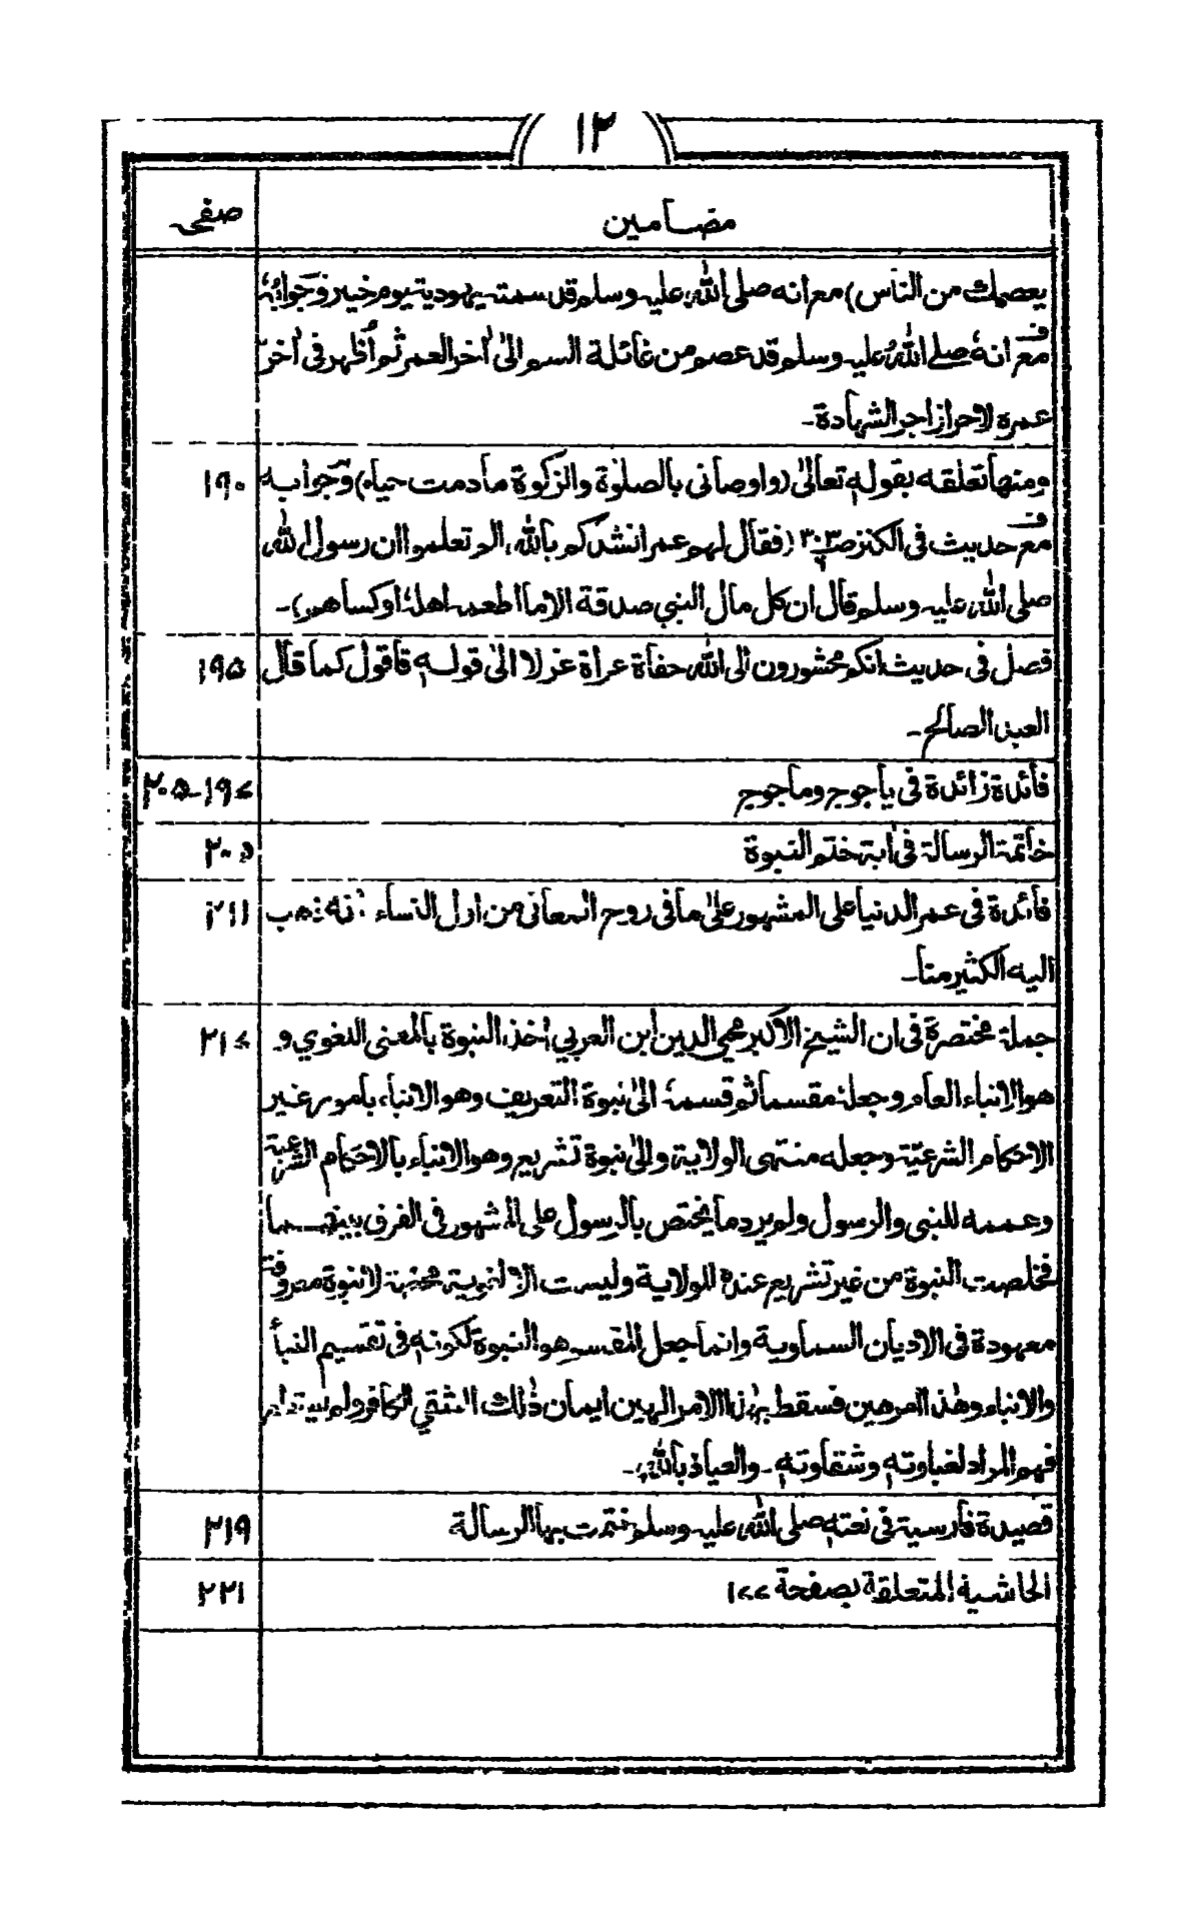 ١٢
مضامين صفحہ
يعصمك من الناس) مع انه صلى الله عليه وسلم قد سمته يهودية يوم خيبر وجوابه
مع انه صلے الله عليه وسلم قد عصم من غائلة السم الىٰ اٰخر العمر ثم أظهر فى اٰخر
عمره لاحراز اجر الشهادة۔
ومنها تعلقه بقوله تعالىٰ (واوصانى بالصلوٰة والزكوة مادمت حيا) وجوابه ١٩٠
مع حديث فى الكنز ص٣٠٣ (فقال لهم عمر انشدكم بالله، الم تعلموا ان رسول الله
صلى الله عليه وسلم قال ان كل مال النبي صدقة الا ما اطعمه اهله او كساهم)۔
فصل فى حديث انكم محشورون الى الله حفاة عراة غرلا الىٰ قوله فاقول كما قال ١٩۵
العبد الصالح۔
فائدة زائدة فى ياجوج وماجوج ١٩٧-٢٠۵
خاتمة الرسالة فى اٰية ختم النبوة ٢٠۵
فائدة فى عمر الدنيا على المشهور علىٰ ما فى روح المعانى من اول النساء انه ذهب ٢١١
اليه الكثير منا۔
جملة مختصرة فى ان الشيخ الاكبر محي الدين ابن العربي اخذ النبوة بالمعنى اللغوي و ٢١٧
هو الانباء العام وجعله مقسما ثم قسمه الىٰ نبوة التعريف وهو الانباء بامور غير
الاحكام الشرعيّة وجعله منتهى الولاية والىٰ نبوة تشريع وهو الانباء بالاحكام الشرعية
وعممه للنبي والرسول ولم يرد ما يختص بالرسول على المشهور فى الفرق بينهما
فخلصت النبوة من غير تشريع عنده للولاية وليست الا لغوية محضة لا نبوة معروفة
معهودة فى الاديان السماوية وانما جعل المقسم هو النبوة لكونه فى تقسيم النبأ
والانباء وهذا امر هين فسقط بهٰذا الامر الهين ايمان ذٰلك الشقي الكافر ولم
فهم المراد لغباوته وشقاوته۔ والعياذ بالله۔
قصيدة فارسية فى نعته صلى الله عليه وسلم ختمت بها الرسالة ٢١٩
الحاشية المتعلقة بصفحة ١٧٧ ٢٢١